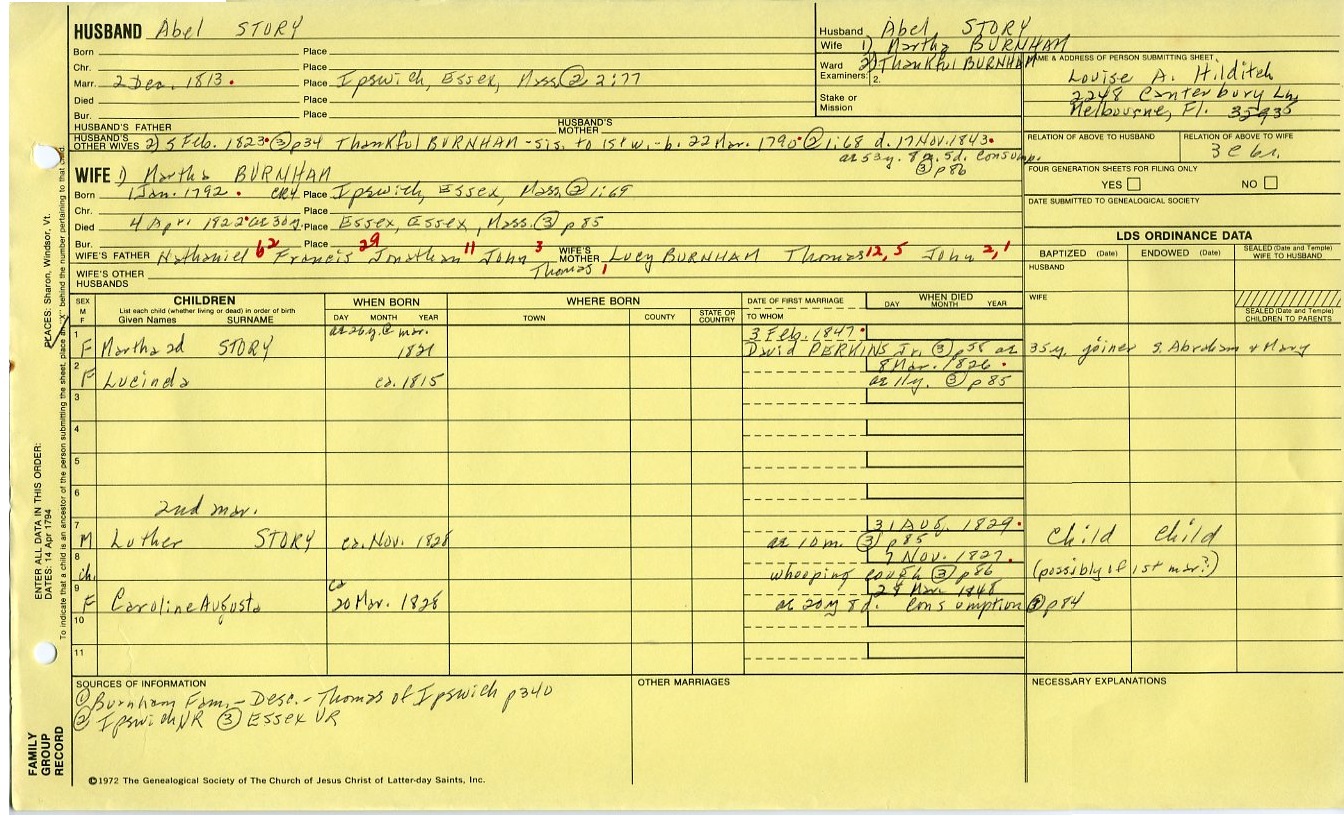 HUSBAND Abel STORY
Born Place
Chr. Place
Marr. 2 Dec. 1813. Place Ipswich, Essex, Mass. ② 2:77
Died Place
Bur. Place
Husband Abel STORY
Wife 1) Martha BURNHAM
Ward 2) Thankful BURNHAM
Examiners: 2.
Stake or
Mission
NAME & ADDRESS OF PERSON SUBMITTING SHEET
Louise A. Hilditch
2248 Canterbury Ln
Melbourne, Fl. 35935
HUSBAND'S FATHER HUSBAND'S MOTHER
HUSBAND'S OTHER WIVES 2) 5 Feb. 1823. ③ p34 Thankful BURNHAM - sis. to 1st w. - b. 22 Mar. 1790. ② 1:68 d. 17 Nov. 1843.
ae 53y. 8m. 5d. consump.
③ p86
RELATION OF ABOVE TO HUSBAND
RELATION OF ABOVE TO WIFE
3c 6r.
FOUR GENERATION SHEETS FOR FILING ONLY
YES NO
DATE SUBMITTED TO GENEALOGICAL SOCIETY
WIFE 1) Martha BURNHAM
Born 1 Jan. 1792. CR4 Place Ipswich, Essex, Mass. ② 1:69
Chr. Place
Died 4 Apr. 1822. ae 30y. Place Essex, Essex, Mass. ③ p85
Bur. Place
WIFE'S FATHER Nathaniel 62 Francis 29 Jonathan 11 John 3
Thomas 1
WIFE'S MOTHER Lucy BURNHAM Thomas 12, 5 John 2, 1
WIFE'S OTHER HUSBANDS
LDS ORDINANCE DATA
BAPTIZED (Date) ENDOWED (Date) SEALED (Date and Temple) WIFE TO HUSBAND
HUSBAND
WIFE
SEALED (Date and Temple) CHILDREN TO PARENTS
SEX M F
CHILDREN
List each child (whether living or dead) in order of birth
Given Names SURNAME
WHEN BORN
DAY MONTH YEAR
WHERE BORN
TOWN COUNTY STATE OR COUNTRY
DATE OF FIRST MARRIAGE
TO WHOM
WHEN DIED
DAY MONTH YEAR
1 ae 26y. @ mar. 3 Feb. 1847.
F Martha 2d STORY 1821 David PERKINS Jr. ③ p55 ae 35y. joiner s. Abraham & Mary
2 8 Mar. 1826.
F Lucinda ca. 1815 ae 11y. ③ p85
3
4
5
6
2nd mar.
7 31 Aug. 1829.
M Luther STORY ca. Nov. 1828 ae 10m. ③ p85 Child Child
8 7 Nov. 1827.
ch. whooping cough ③ p86 (possibly of 1st mar?)
9 ca 28 Mar. 1848
F Caroline Augusta 20 Mar. 1828 ae 20y 8d. consumption ③ p84
10
11
SOURCES OF INFORMATION
① Burnham Fam. - Desc. - Thomas of Ipswich p340
② Ipswich VR ③ Essex VR
OTHER MARRIAGES
NECESSARY EXPLANATIONS
©1972 The Genealogical Society of The Church of Jesus Christ of Latter-day Saints, Inc.
FAMILY GROUP RECORD
ENTER ALL DATA IN THIS ORDER:
DATES: 14 Apr 1794
PLACES: Sharon, Windsor, Vt.
To indicate that a child is an ancestor of the person submitting the sheet, place an "X" behind the number pertaining to that child.